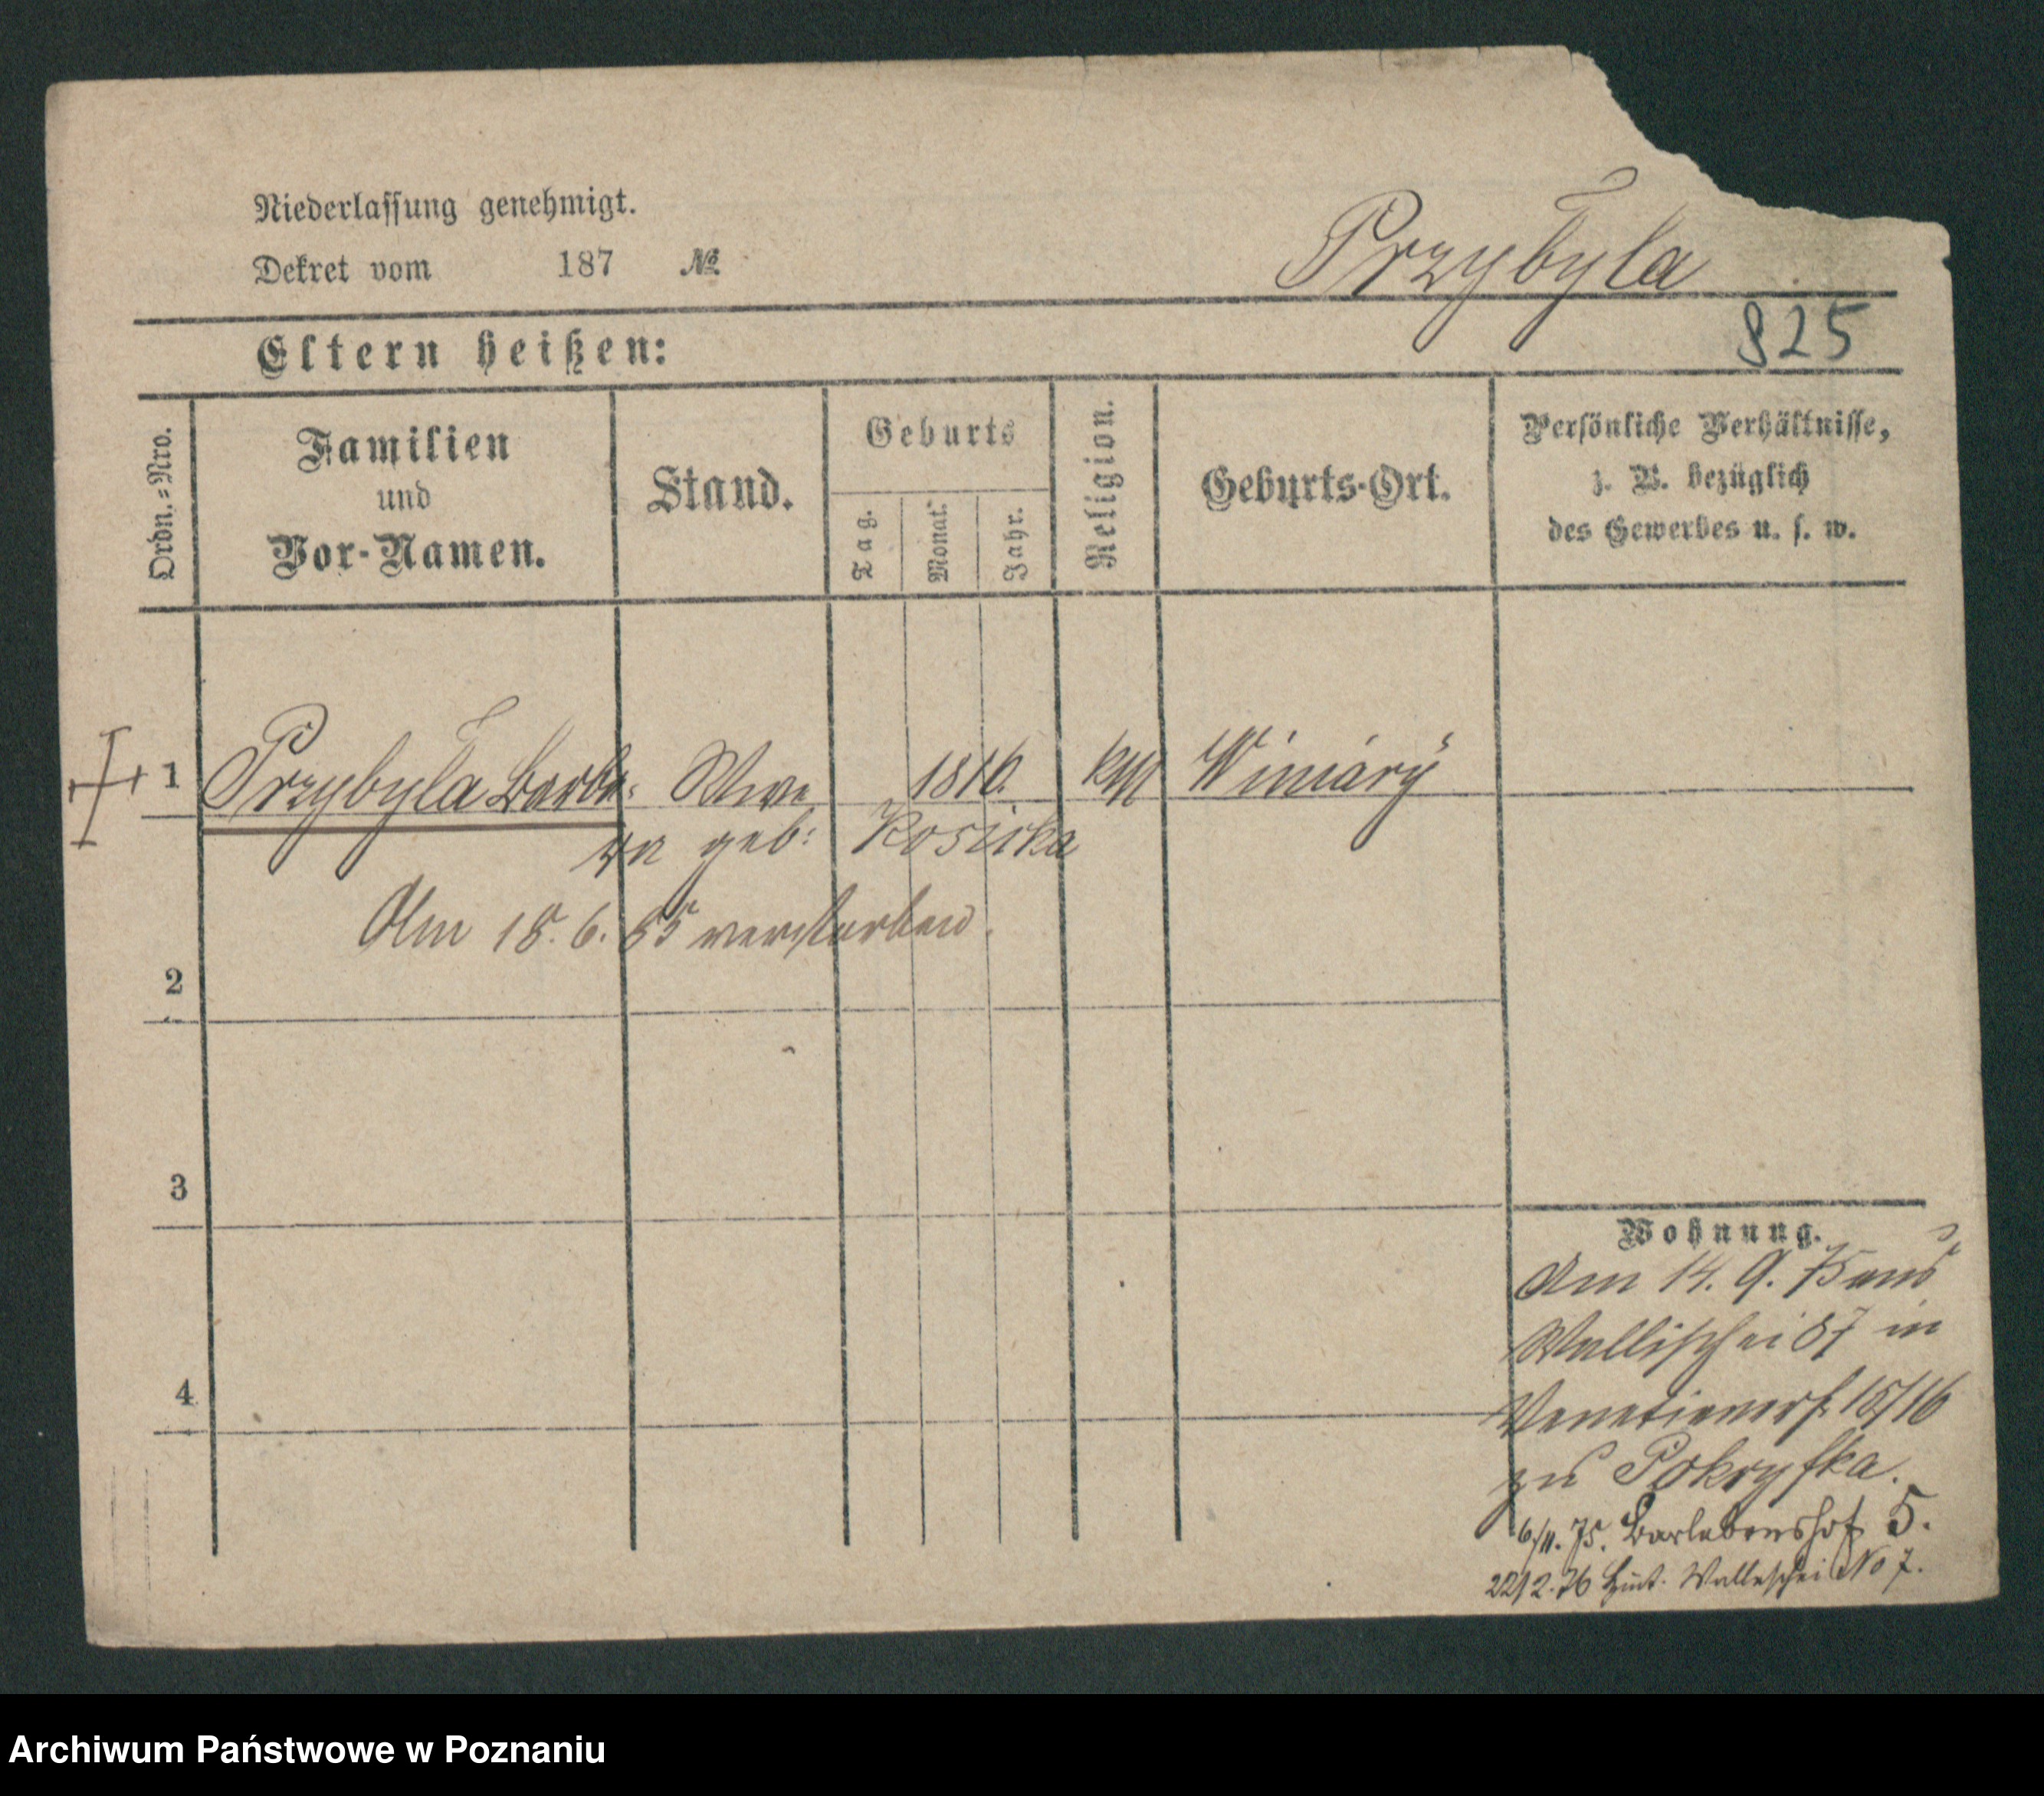 Niederlassung genehmigt.
Dekret vom 187 №
Przybyla
825
Eltern heißen:
Ordn.=Nro.
Familien
und
Vor-Namen.
Stand.
Geburts
Tag.
Monat.
Jahr.
Religion.
Geburts-Ort.
Persönliche Verhältnisse,
z. B. bezüglich
des Gewerbes u. s. w.
1 Przybyla Barba- Wwe 1816. kath Winiary
ra geb: Kosicka
Am 18. 6. 85 verstorben.
2
3
4
Wohnung.
Am 14. 9. 75 aus
Wallischei 87 in
Venetianerst. 15/16
zu Pokryfka.
6/11. 75. Barlebenshof 5.
22/2. 76 Hint. Wallischei No 7.
Archiwum Państwowe w Poznaniu